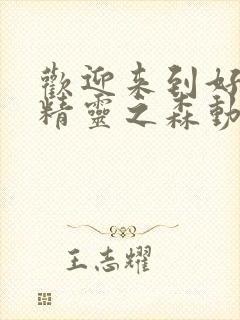 歡迎来到好
精靈之森動
王志耀